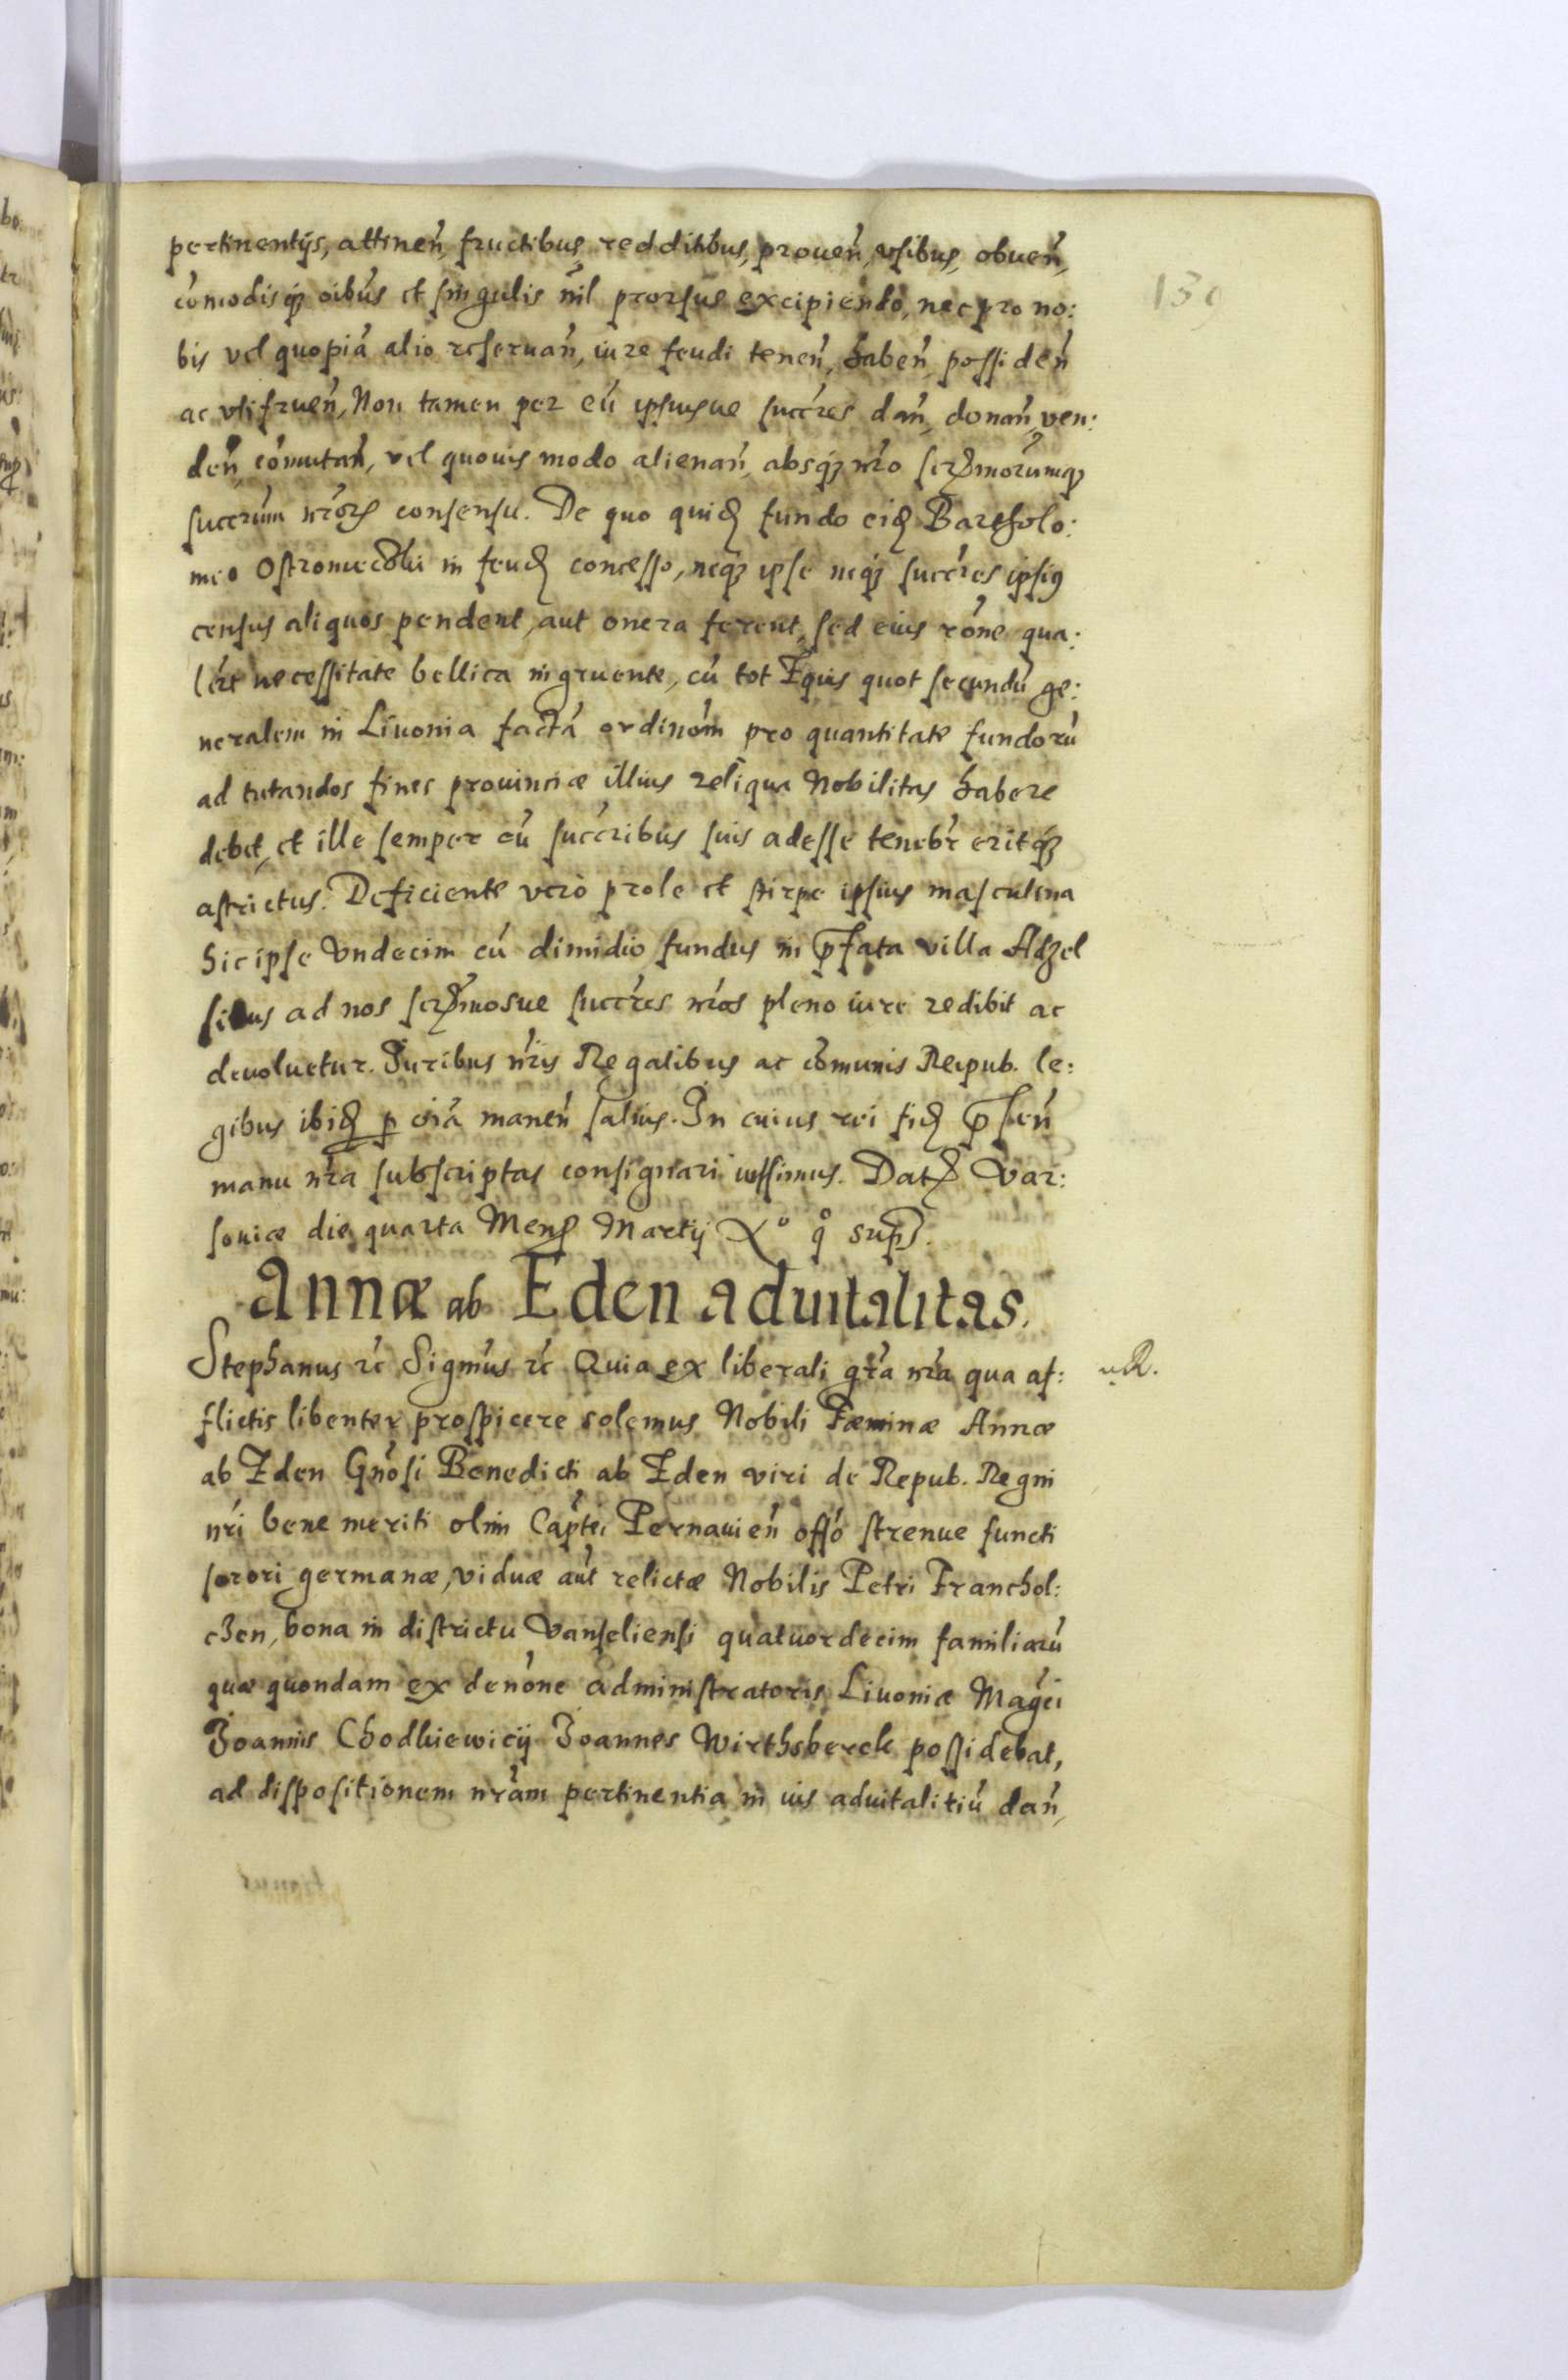 pertinentijs, attinen̄, fructibus, redditibus, prouen̄, vsibus, obuen̄,
139
com̄odisq́ȝ oībus et singulis nīl prorsus excipiendo, nec pro no:
bis vel quopiā alio reseruan̄, iure feudi tenen̄, haben̄, possiden̄
ac vtifruen̄, Non tamen per eū ipsiusue succ̄res dan̄, donan̄, ven:
den̄, com̄utan̄, vel quouis modo alienan̄, absq́ȝ nr̄o ser̄morumqȝ
succrūm nr̄orȝ consensu. De quo quidȝ fundo eidȝ Bartholo:
meo Ostromieczki in feudȝ concesso, neq́ȝ ipse neq́ȝ succ̄res ipsiꝰ
census aliquos pendent, aut onera ferent, sed eius rōne qua:
lib́t necessitate bellica ingruente, cū tot Equis quot secundū ge:
neralem in Liuonia factā ordinōm pro quantitate fundorū
ad tutandos fines prouinciæ illius reliqua Nobilitas habere
debet, et ille semper cū succ̄ribus suis adesse tenebr̄ eritq́ȝ
astrictus. Deficiente verò prole et stirpe ipsius masculina
hic ipse vndecim cū dimidio fundus in p̄fata villa Adzel
situs ad nos ser̄mosue succ̄res nr̄os pleno iure redibit ac
deuoluetur. Juribus nr̄is Regalibus ac com̄unis Reipub. le:
gibus ibidȝ p oīa manen̄ saluis. In cuius rei fidȝ p̄sen̄
manu nr̄a subscriptas consignari iussimus. Datȝ Var:
souiæ die quarta Mensȝ Martij Xº qº sup̄.
Annæ ab Eden aduitalitas.
Stephanus ɾc̄ Sigm̄us ɾc̄ Quia ex liberali gr̄a nr̄a qua af:
flictis libenter prospicere solemus Nobili Fœminæ Annæ
ab Eden Gn̄osi Benedicti ab Eden viri de Repub. Regni
nr̄i bene meriti olim Cap̄tei Pernauien̄ offō strenue functi
sorori germanæ, viduæ aūt relictæ Nobilis Petri Franchol:
czen, bona in districtu Vanseliensi quatuordecim familiarū
quæ quondam ex denōne administratoris Liuoniæ Maḡci
Joannis Chodkiewicij Joannes Wirthsberck possidebat,
ad dispositionem nr̄am pertinentia in ius aduitalitiū dan̄,